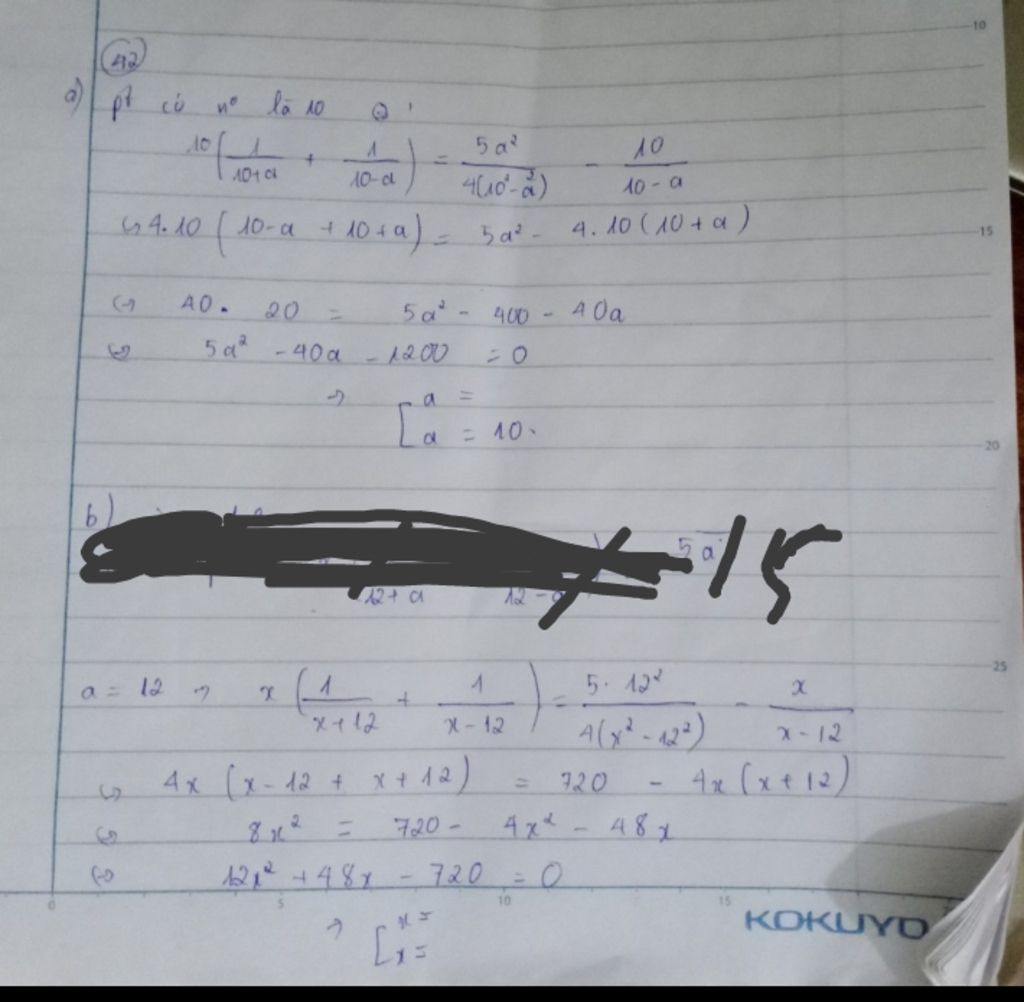 42
a) pt có nº là 10
10(1/(10+a) + 1/(10-a)) = 5a²/(4(10²-a²)) - 10/(10-a)
↔ 4.10 (10-a + 10+a) = 5a² - 4.10(10+a)
↔ 40. 20 = 5a² - 400 - 40a
↔ 5a² - 40a - 1200 = 0
→ [a =
a = 10.
b)
12+a 12-a 5a
15
a = 12 → x(1/(x+12) + 1/(x-12)) = 5.12²/(4(x²-12²)) - x/(x-12)
↔ 4x (x-12 + x+12) = 720 - 4x(x+12)
↔ 8x² = 720 - 4x² - 48x
↔ 12x² + 48x - 720 = 0
→ [x =
x =
10
15
20
25
0 5 10 15
KOKUYO